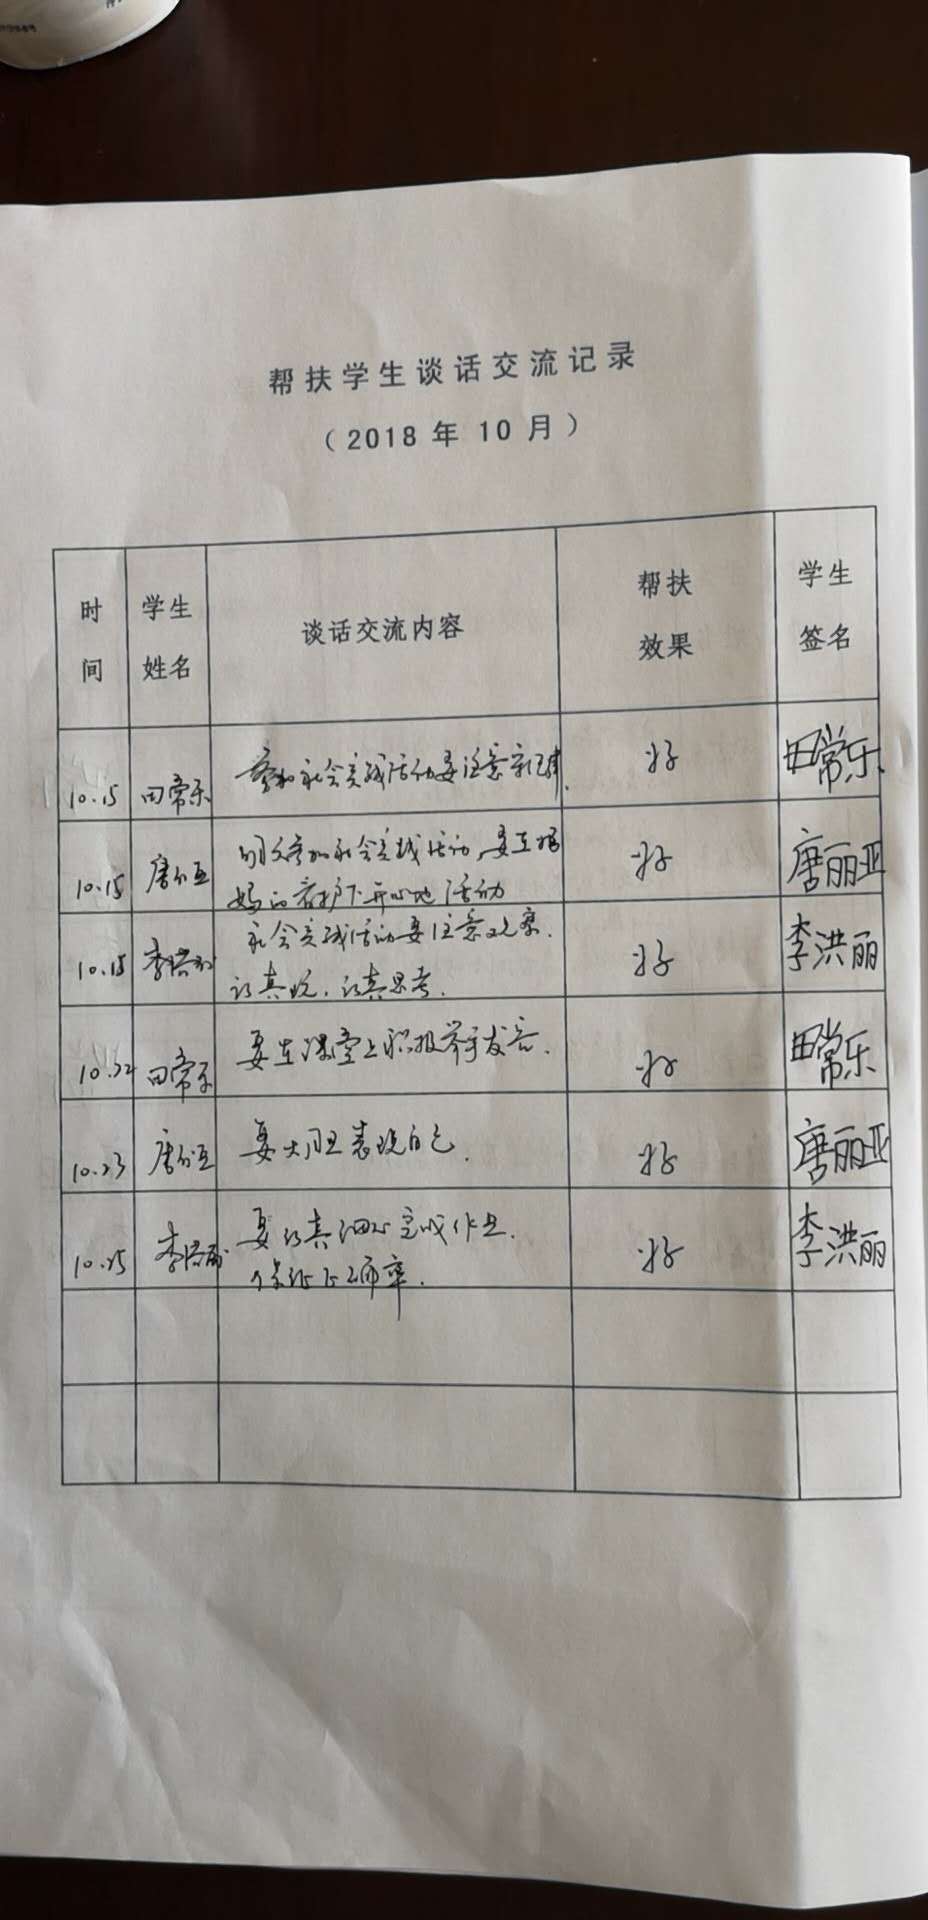 帮扶学生谈话交流记录
（2018 年 10 月）
时间 学生姓名 谈话交流内容 帮扶效果 学生签名
10.15 田常乐 参加社会实践活动要注意守纪律. 好 田常乐
10.15 唐丽亚 参加社会实践活动，要在妈
妈的看护下开心地活动 好 唐丽亚
10.15 李洪丽 社会实践活动要注意观察.
认真玩，认真思考. 好 李洪丽
10.22 田常乐 要在课堂上积极举手发言. 好 田常乐
10.23 唐丽亚 要大胆表现自己. 好 唐丽亚
10.25 李洪丽 要认真细心完成作业.
保证正确率. 好 李洪丽